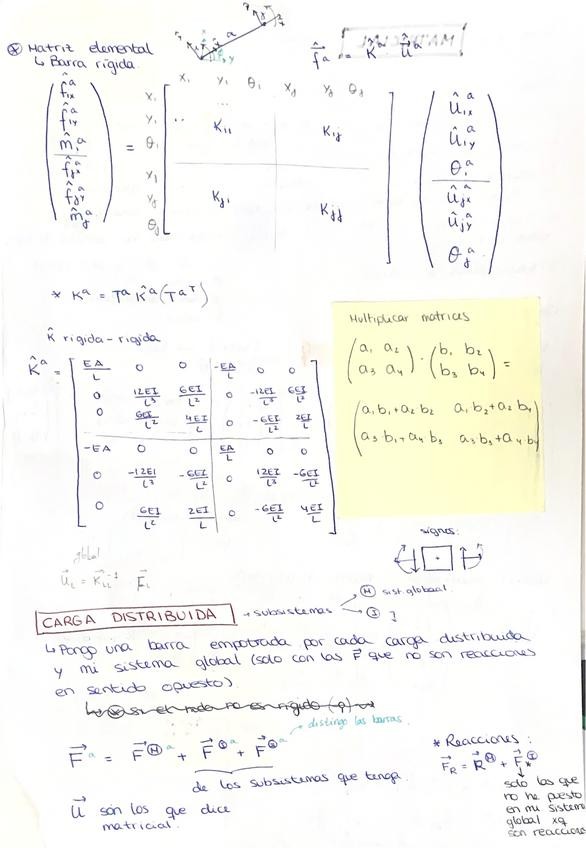 * Matriz elemental
↳ Barra rígida
f̂ᵃ = K̂ᵃ Ûᵃ
MATRICIAL
x₁ y₁ θ₁ xⱼ yⱼ θⱼ
f̂ᵢₓᵃ
f̂ᵢᵧᵃ
m̂ᵢᵃ
f̂ⱼₓᵃ
f̂ⱼᵧᵃ
m̂ⱼᵃ
=
x₁
y₁
θ₁
xⱼ
yⱼ
θⱼ
Kᵢᵢ Kᵢⱼ
Kⱼᵢ Kⱼⱼ
ûᵢₓᵃ
ûᵢᵧᵃ
θᵢᵃ
ûⱼₓᵃ
ûⱼᵧᵃ
θⱼᵃ
* Kᵃ = Tᵃ K̂ᵃ (Tᵃᵀ)
K̂ rígida-rígida
K̂ᵃ =
EA/L 0 0 -EA/L 0 0
0 12EI/L³ 6EI/L² 0 -12EI/L³ 6EI/L²
0 6EI/L² 4EI/L 0 -6EI/L² 2EI/L
-EA 0 0 EA/L 0 0
0 -12EI/L³ -6EI/L² 0 12EI/L³ -6EI/L²
0 6EI/L² 2EI/L 0 -6EI/L² 4EI/L
Multiplicar matrices
(a₁ a₂) · (b₁ b₂) =
(a₃ a₄) (b₃ b₄)
(a₁b₁+a₂b₂ a₁b₂+a₂b₄)
(a₃b₁+a₄b₃ a₃b₃+a₄b₄)
signos:
global
U⃗_L = K⃗_LL⁻¹ F⃗_L
CARGA DISTRIBUIDA → subsistemas
Ⓗ sist. globaal
①
↳ Pongo una barra empotrada por cada carga distribuida
y mi sistema global (solo con las F⃗ que no son reacciones
en sentido opuesto)
↳ * si el nodo no es rígido (φ)
distingo las barras.
F⃗ᵃ = F⃗Ⓗᵃ + F⃗①ᵃ + F⃗②ᵃ
de los subsistemas que tenga.
U⃗ són los que dice
matricial.
* Reacciones:
F⃗_R = R⃗Ⓗ + F⃗*①
solo las que
no he puesto
en mi sistema
global xq
son reacciones